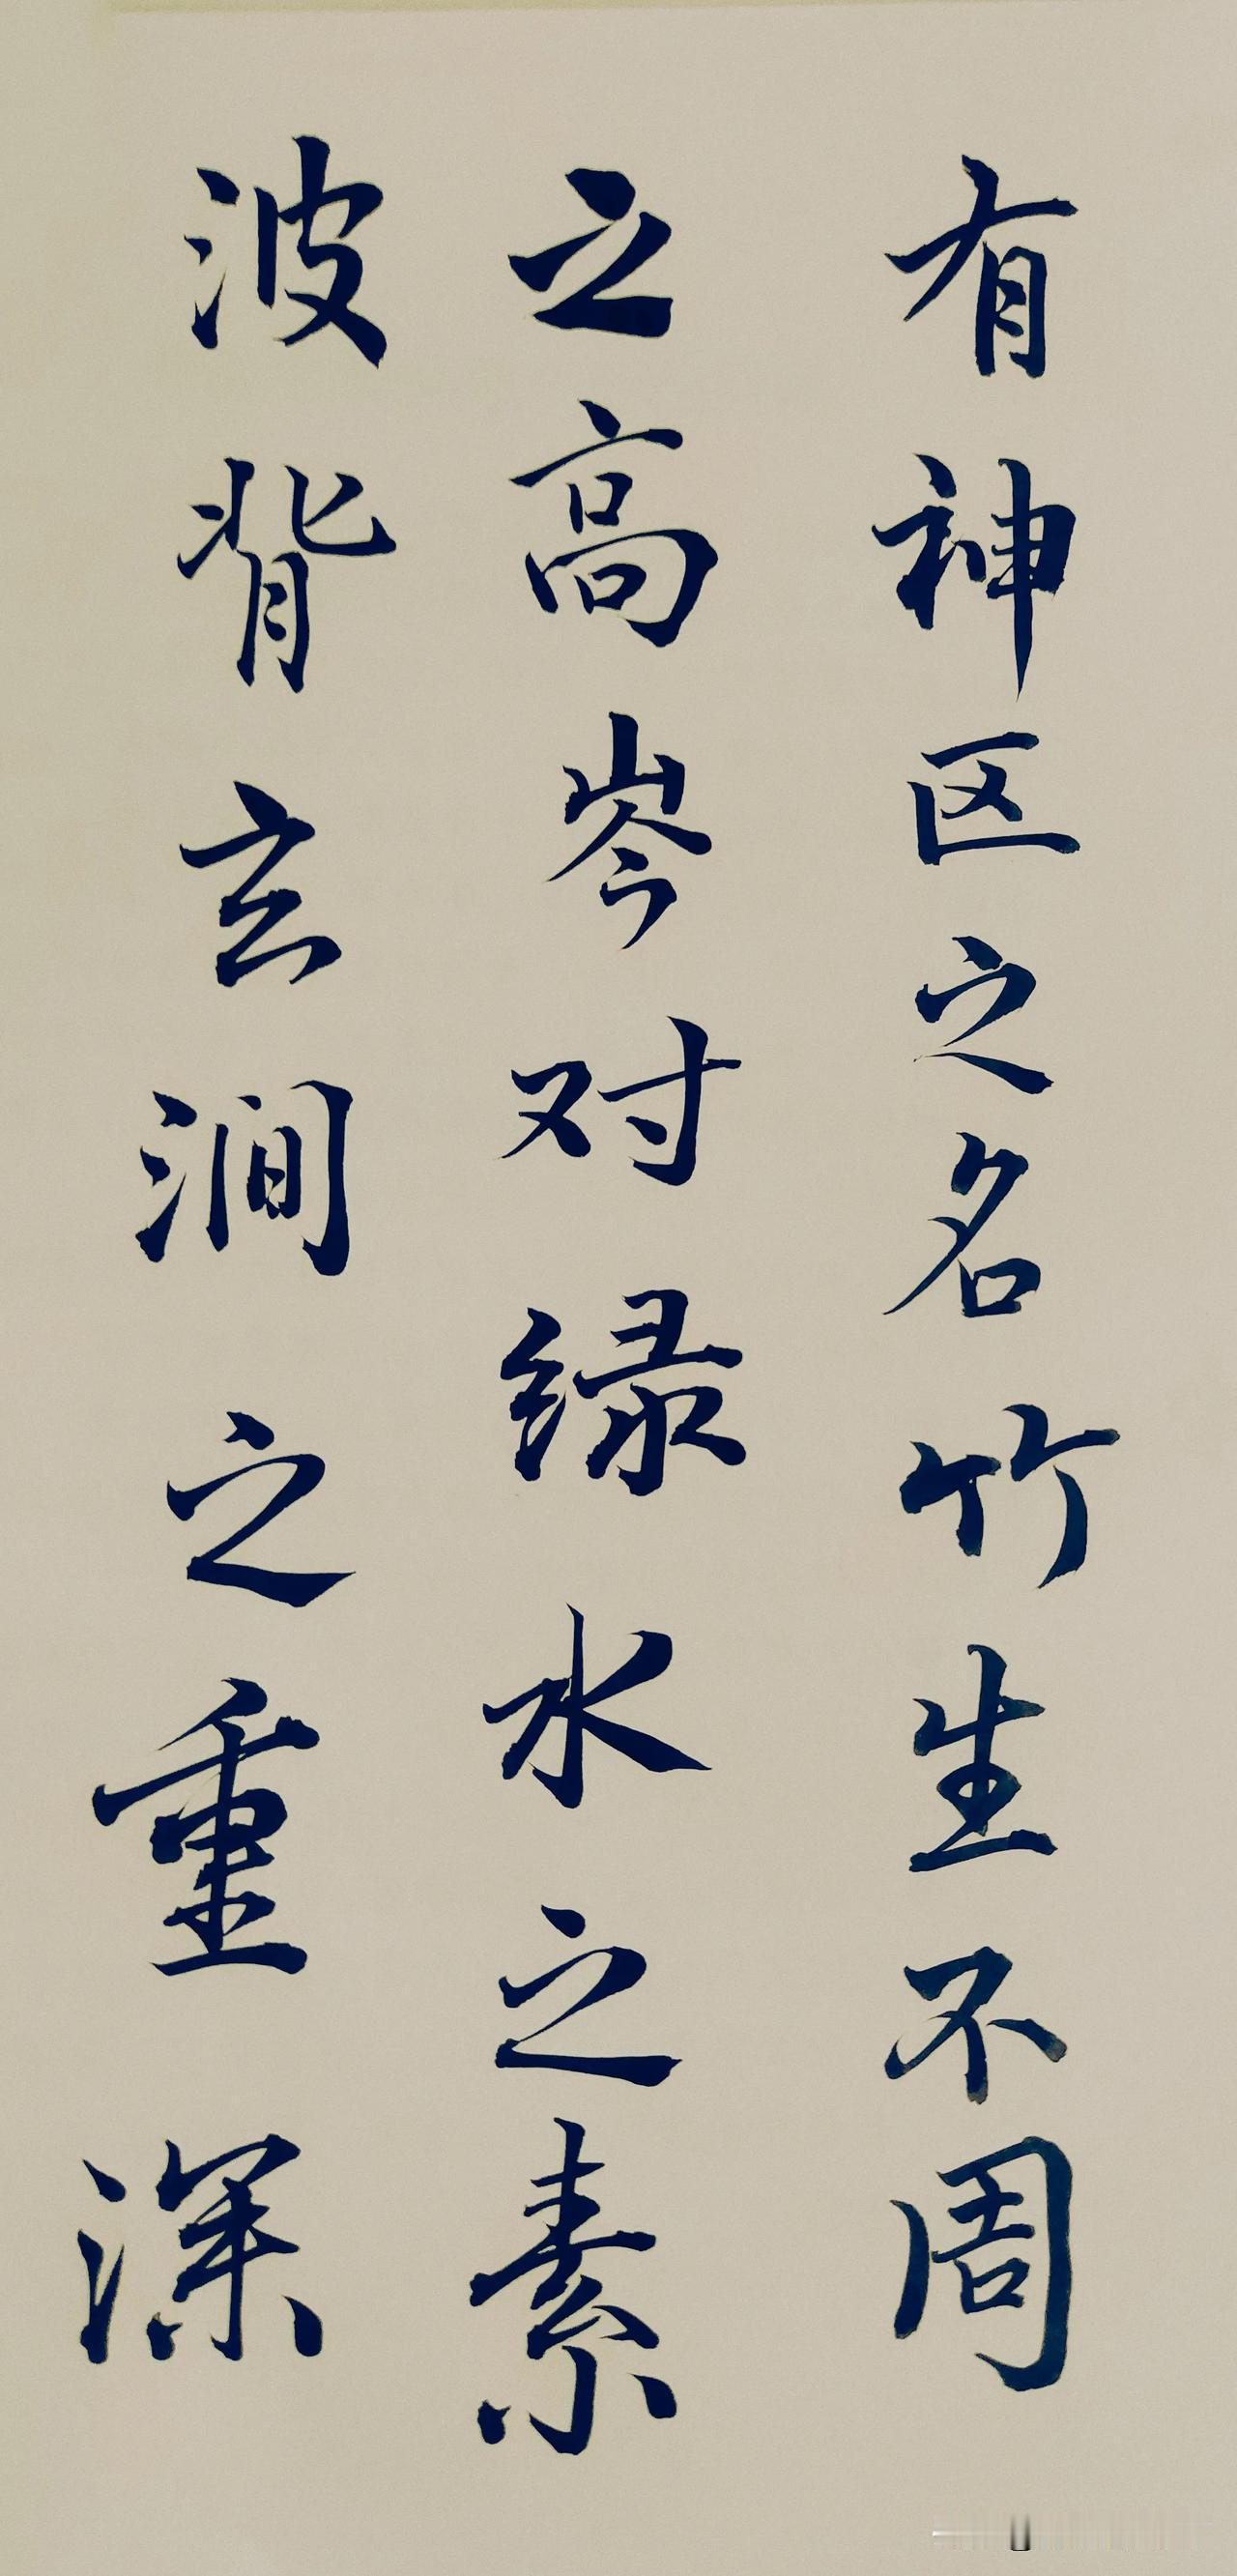 有神区之名竹生不周
之高岑对绿水之素
波背玄涧之重深